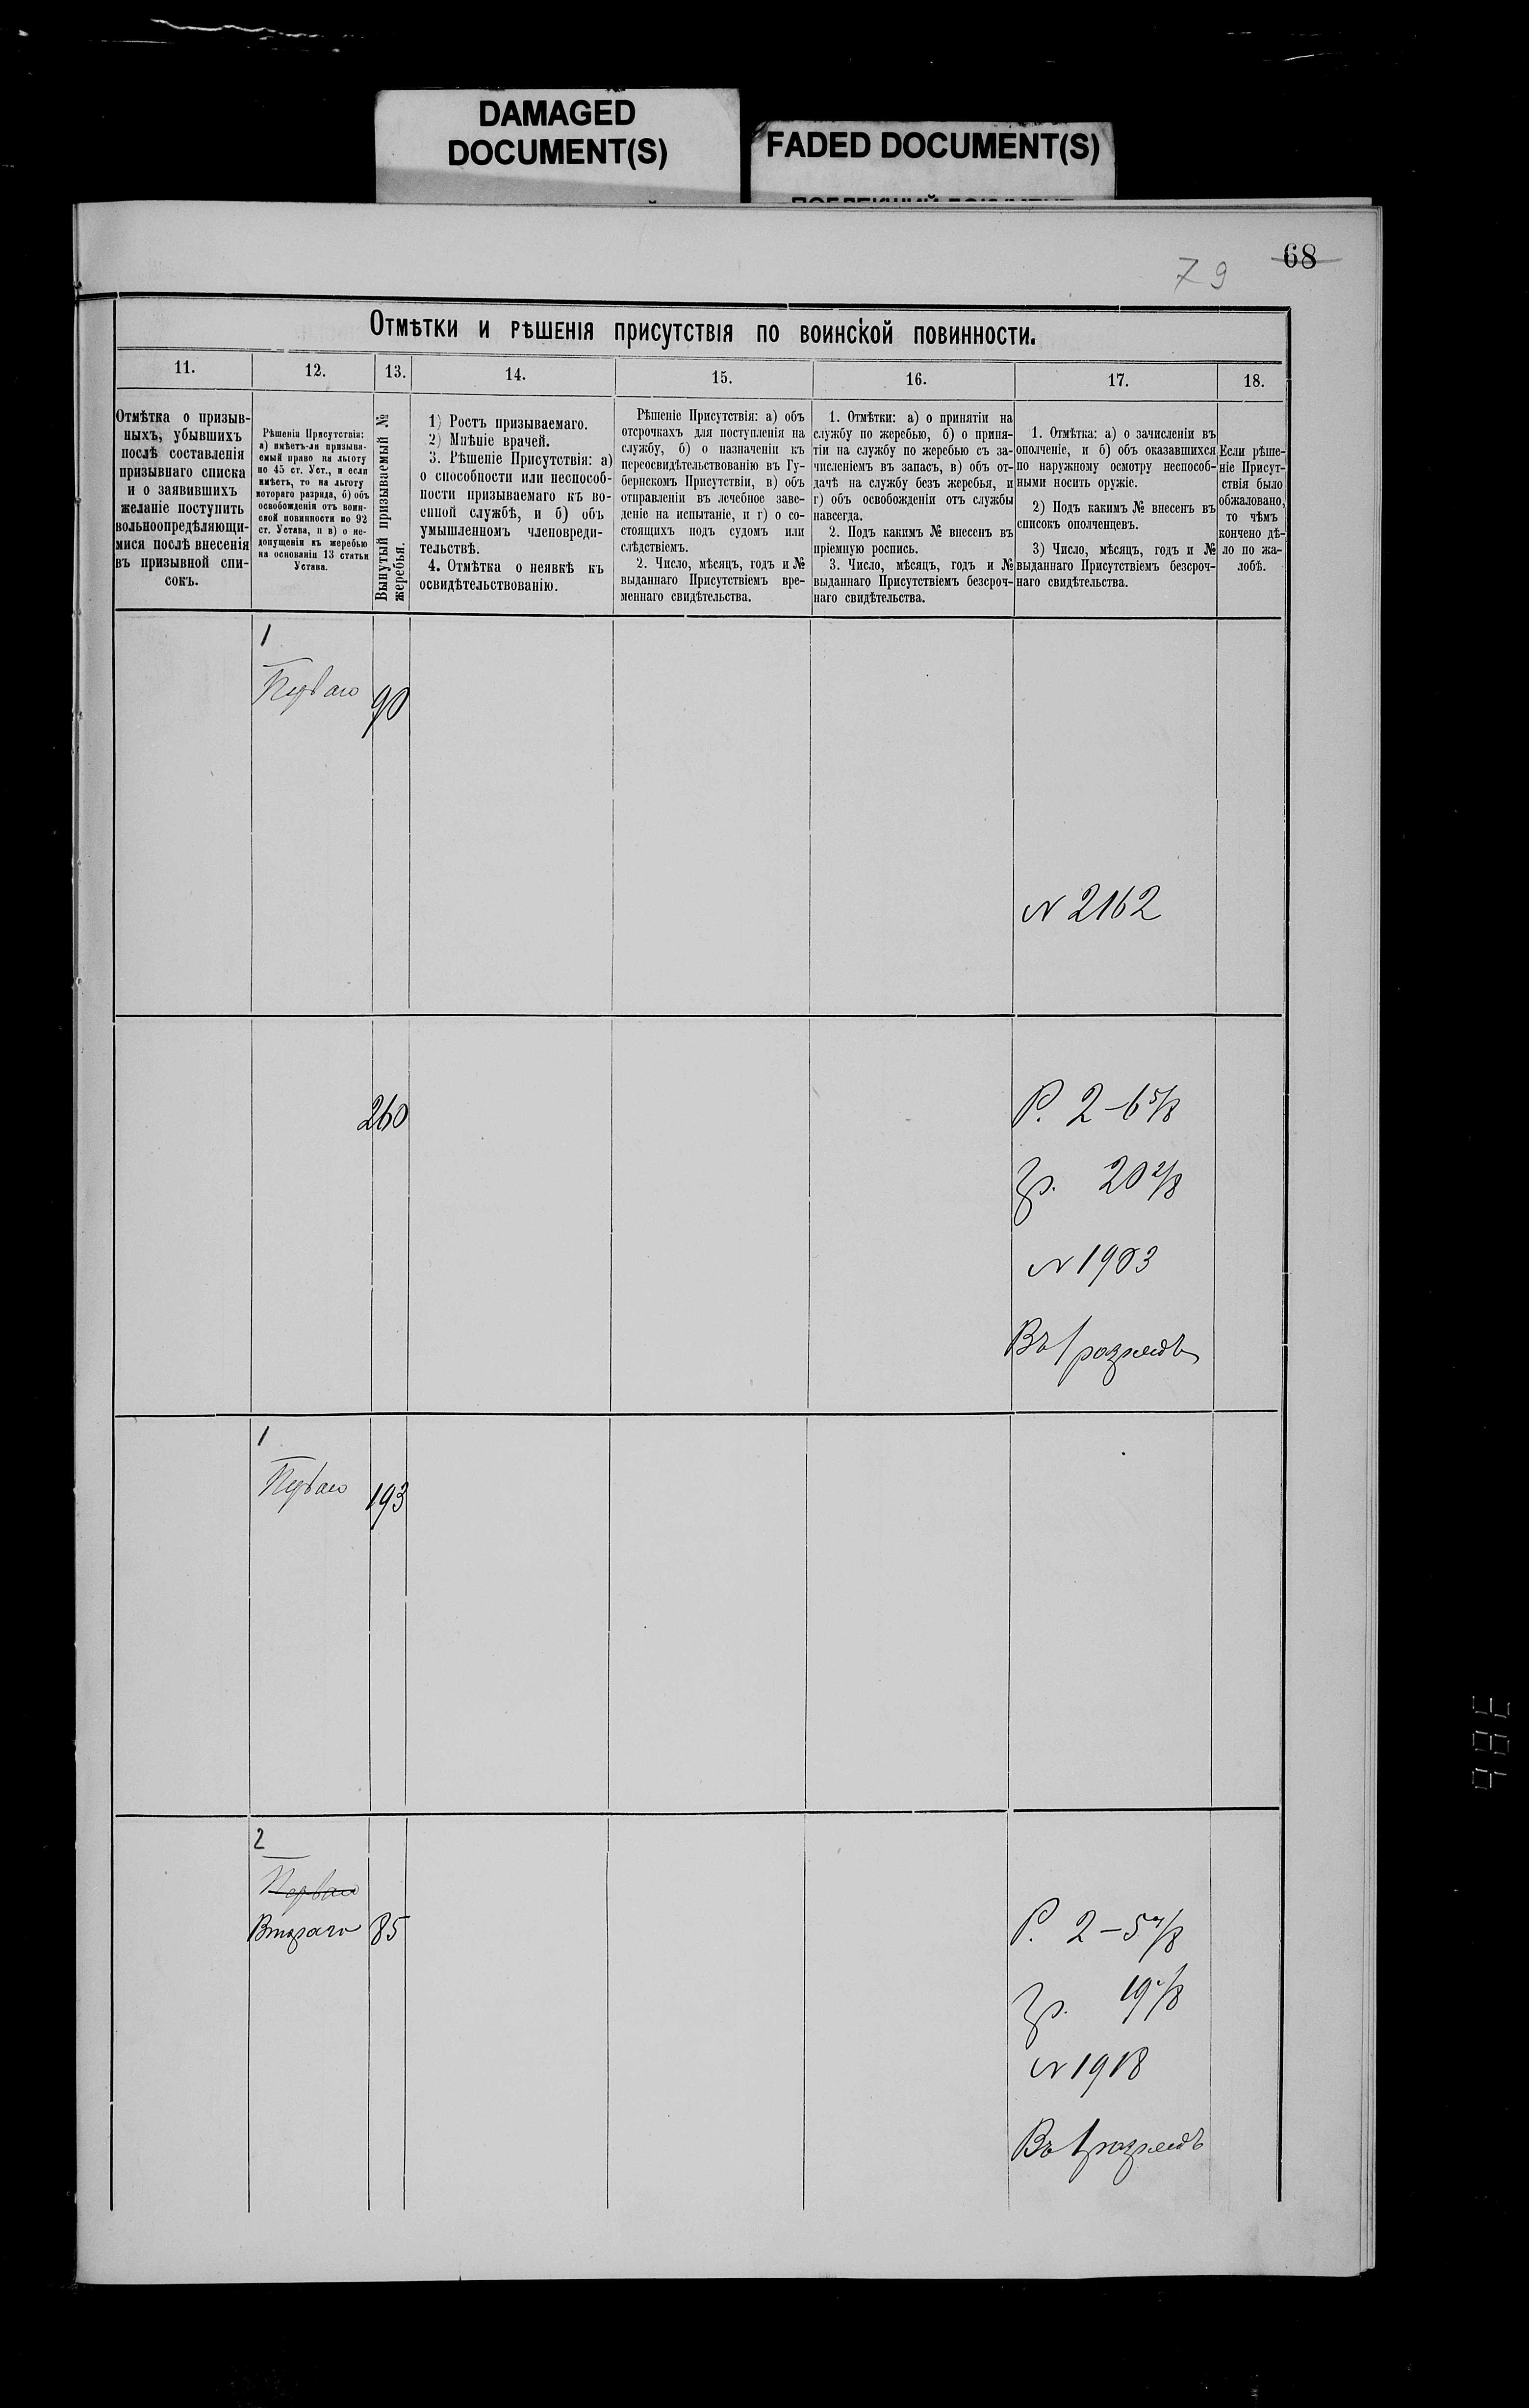 DAMAGED
DOCUMENT(S)
FADED DOCUMENT(S)
68
79
Отмѣтки и рѣшенія присутствія по воинской повинности.
11.
12.
13.
14.
15.
16.
17.
18.
Отмѣтка о призыв-
ныхъ, убывшихъ
послѣ составленія
призывнаго списка
и о заявившихъ
желаніе поступить
вольноопредѣляющи-
мися послѣ внесенія
въ призывной спи-
сокъ.
Рѣшенія Присутствія:
а) имѣетъ-ли призыва-
емый право на льготу
по 45 ст. Уст., и если
имѣетъ, то на льготу
котораго разряда, б) объ
освобожденіи отъ воин-
ской повинности по 92
ст. Устава, и в) о не-
допущеніи къ жеребью
на основаніи 13 статьи
Устава.
Вынутый призываемый №
жеребья.
1) Ростъ призываемаго.
2) Мнѣніе врачей.
3. Рѣшеніе Присутствія: а)
о способности или неспособ-
ности призываемаго къ во-
енной службѣ, и б) объ
умышленномъ членовреди-
тельствѣ.
4. Отмѣтка о неявкѣ къ
освидѣтельствованію.
Рѣшеніе Присутствія: а) объ
отсрочкахъ для поступленія на
службу, б) о назначеніи къ
переосвидѣтельствованію въ Гу-
бернскомъ Присутствіи, в) объ
отправленіи въ лечебное заве-
деніе на испытаніе, и г) о со-
стоящихъ подъ судомъ или
слѣдствіемъ.
2. Число, мѣсяцъ, годъ и №
выданнаго Присутствіемъ вре-
меннаго свидѣтельства.
1. Отмѣтки: а) о принятіи на
службу по жеребью, б) о приня-
тіи на службу по жеребью съ за-
численіемъ въ запасъ, в) объ от-
дачѣ на службу безъ жеребья, и
г) объ освобожденіи отъ службы
навсегда.
2. Подъ какимъ № внесенъ въ
пріемную роспись.
3. Число, мѣсяцъ, годъ и №
выданнаго Присутствіемъ безсроч-
наго свидѣтельства.
1. Отмѣтка: а) о зачисленіи въ
ополченіе, и б) объ оказавшихся
по наружному осмотру неспособ-
ными носить оружіе.
2) Подъ какимъ № внесенъ въ
списокъ ополченцевъ.
3) Число, мѣсяцъ, годъ и №
выданнаго Присутствіемъ безсроч-
наго свидѣтельства.
Если рѣше-
ніе Присут-
ствія было
обжаловано,
то чѣмъ
кончено дѣ-
ло по жа-
лобѣ.
1
Перваго
90
N 2162
260
Р. 2-6 5/8
Гр. 20 2/8
N 1903
Въ 1 разрядъ
1
Перваго
193
2
Перваго
Втораго
85
Р. 2-5 /8
Гр. 19 /8
N 1918
Въ 1 разрядъ
386